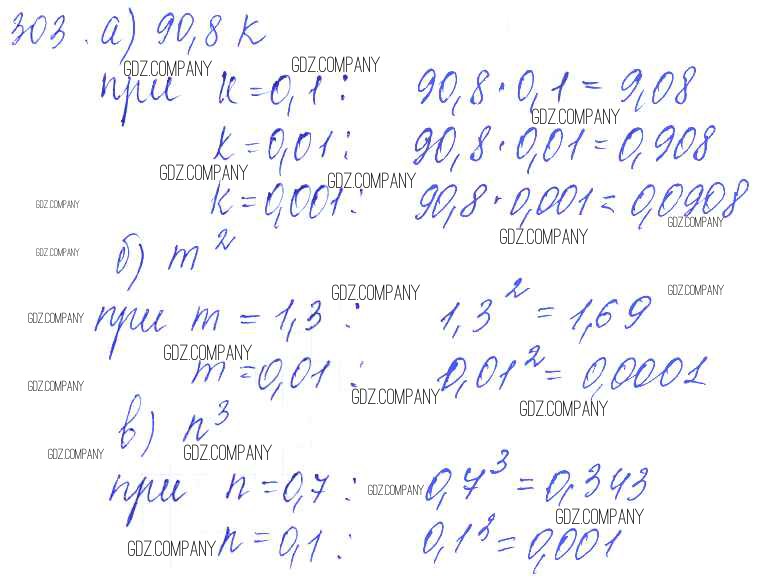 303. а) 90,8 k
GDZ.COMPANY GDZ.COMPANY
при k = 0,1 : 90,8 · 0,1 = 9,08
GDZ.COMPANY
k = 0,01 : 90,8 · 0,01 = 0,908
GDZ.COMPANY GDZ.COMPANY
k = 0,001 : 90,8 · 0,001 = 0,0908
GDZ.COMPANY GDZ.COMPANY GDZ.COMPANY
б) m²
GDZ.COMPANY
GDZ.COMPANY GDZ.COMPANY
при m = 1,3 : 1,3² = 1,69
GDZ.COMPANY GDZ.COMPANY
m = 0,01 : 0,01² = 0,0001
GDZ.COMPANY GDZ.COMPANY GDZ.COMPANY
в) n³
GDZ.COMPANY GDZ.COMPANY
при n = 0,7 : 0,7³ = 0,343
GDZ.COMPANY GDZ.COMPANY
n = 0,1 : 0,1³ = 0,001
GDZ.COMPANY